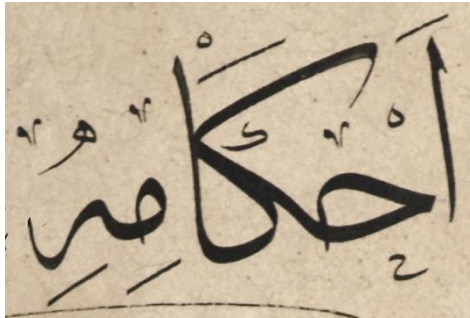 اَحْكَاْمِهِ